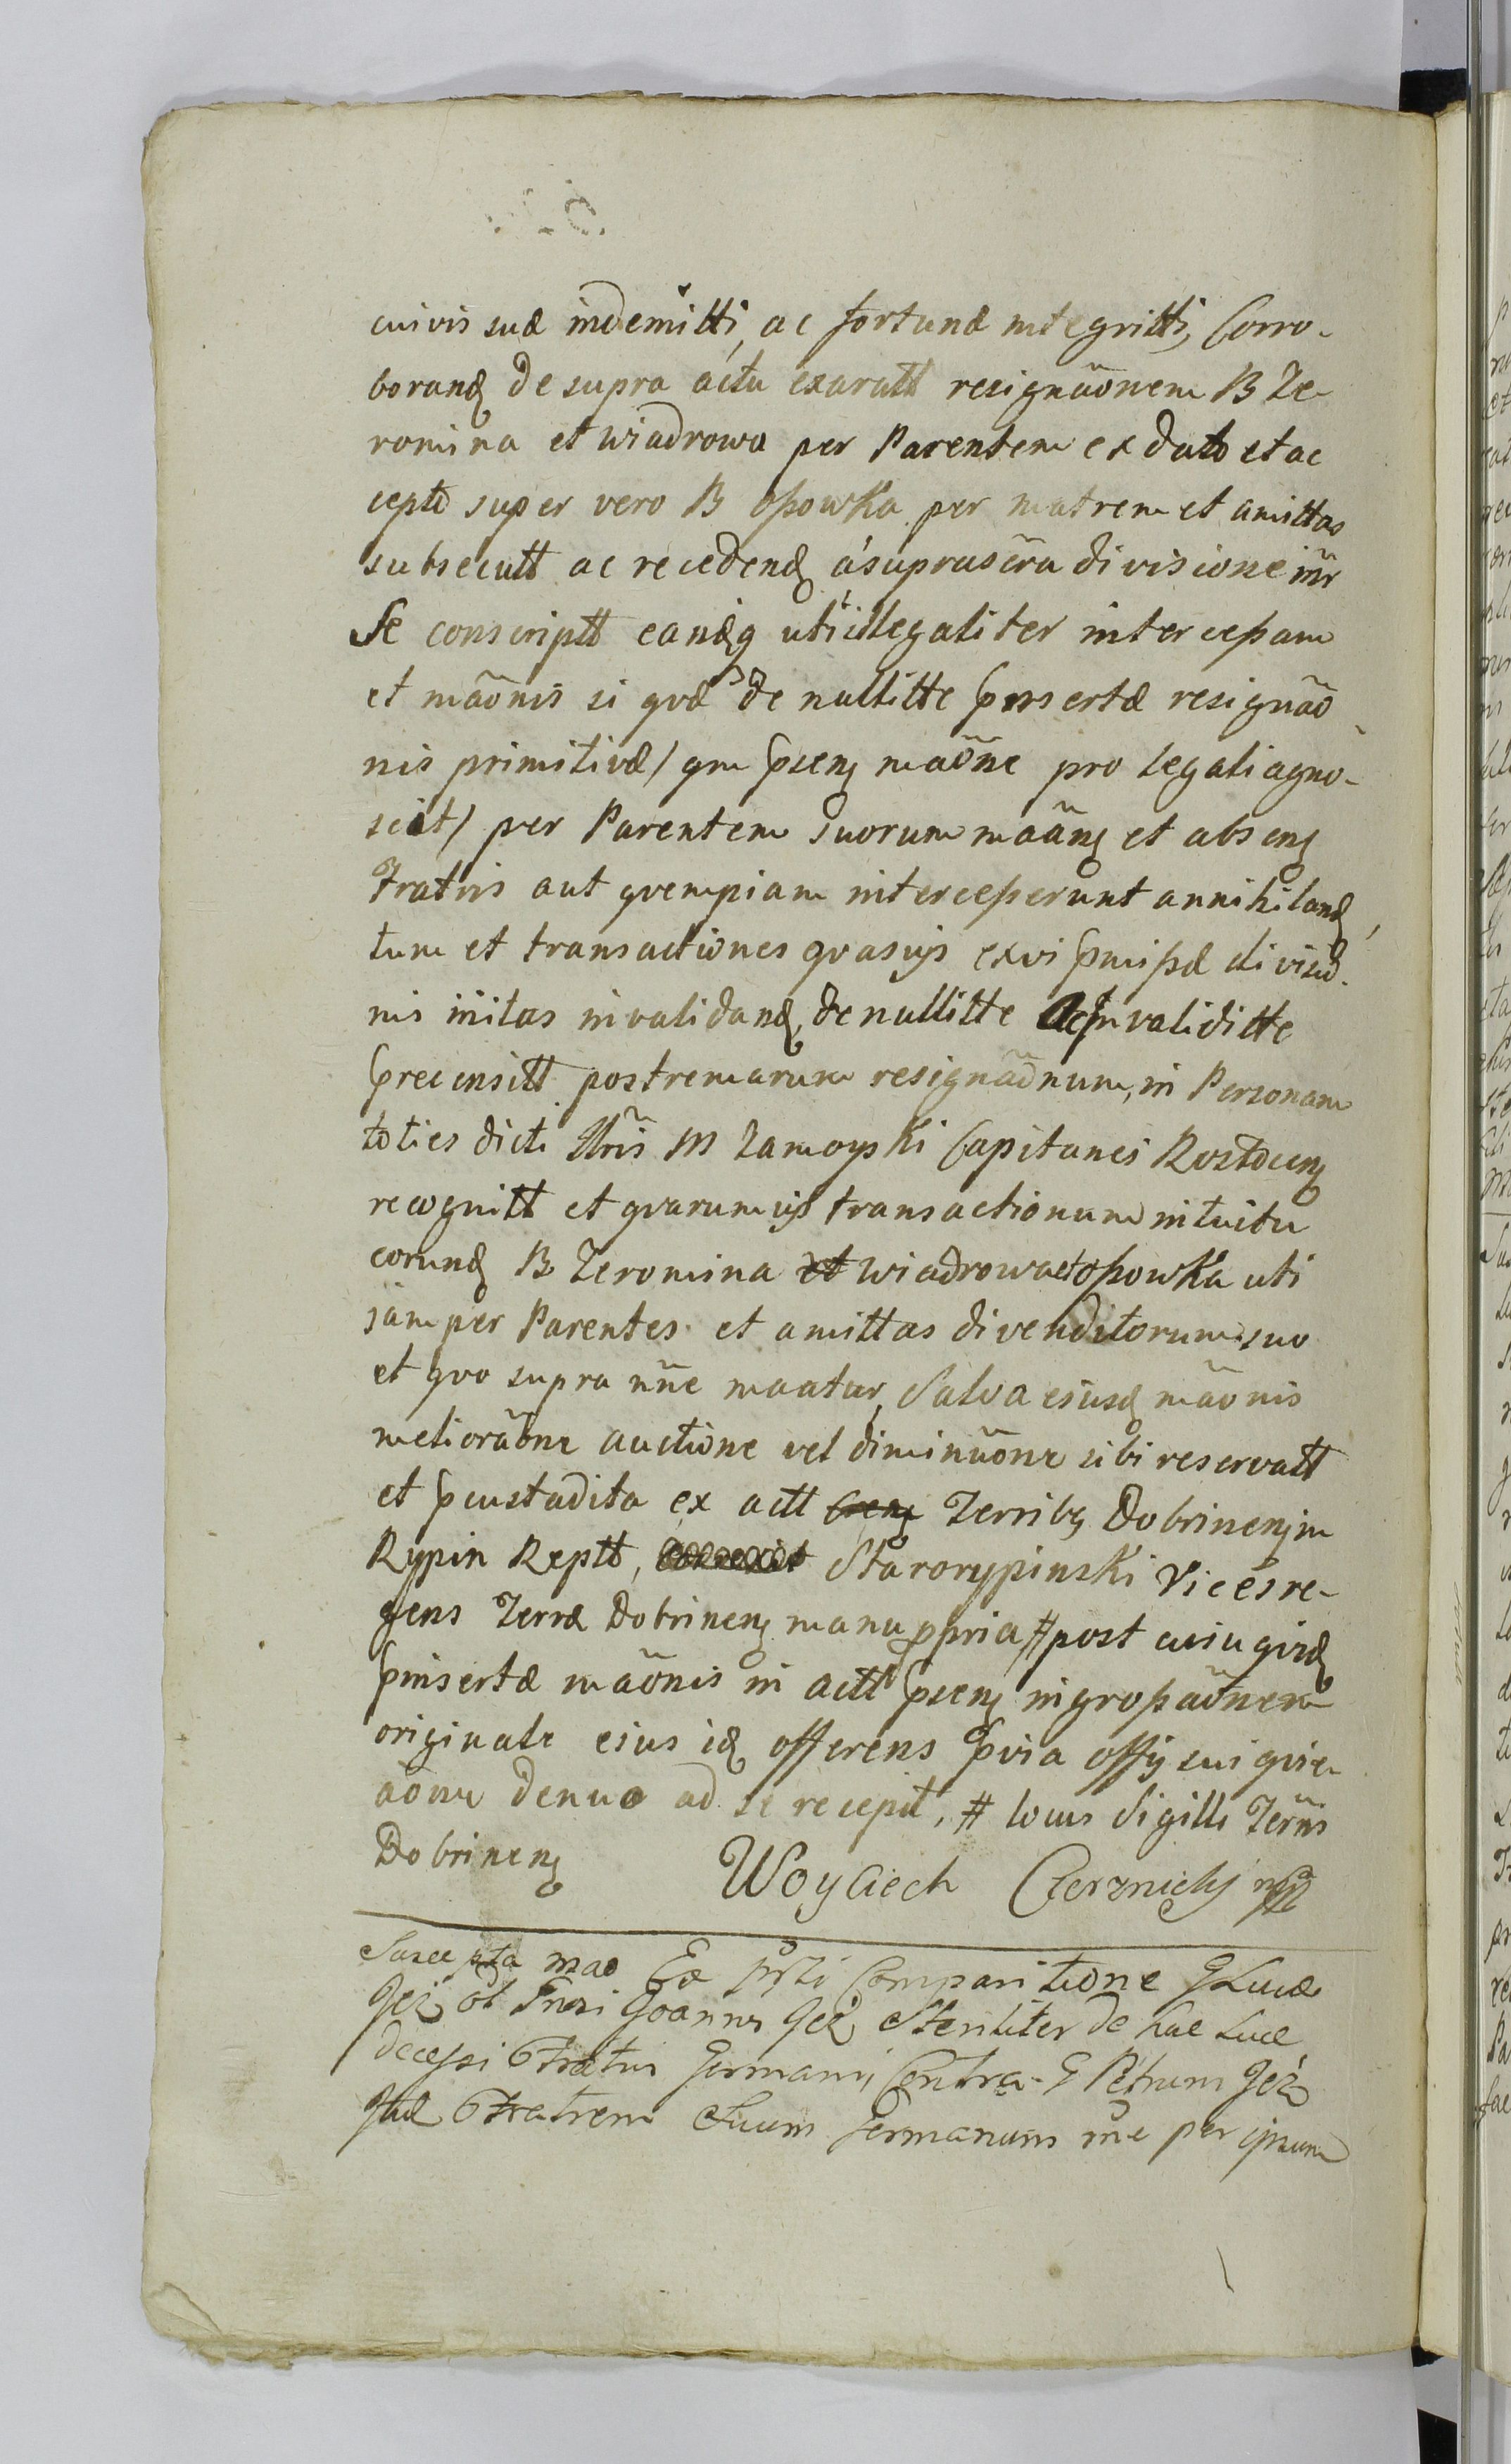 cuivis suæ indemitti, ac fortunæ integritti, Corro-
borand de supra actu exaratt resignãonem B Ze-
romina et Wiadrowa per Parentem ex dato et ac
cepto super vero B Ossowka per matrem et amittas
subsecutt ac recedend á suprascra divisione intr
Se conscriptt eandq uti illegaliter intercessam
et mãonis si quæ de nullitte pinsertæ resignão
nis primitivæ / qm psens maõne pro legali agno-
scit / per Parentem suorum maãns et absens
Fratris aut quempiam intercesserunt annihiland
tum et transactiones quasvis ex vi pmissæ divisio-
nis initas invalidand, de nullitte Ac invaliditte
precensitt postremarum resignãonum, in Personam
toties dicti Mris M Zamoyski Capitanei Rostocens
recognitt et quarumvis transactionum intuitu
eorund B Zeromina et Wiadrowa et Ossowka uti
jam per Parentes et amittas divenditorum suo
et quo supra nñe maatur, Salva ejusd mãonis
meliorãone auctione vel diminuõne sibi reservatt
et pcustadita ex actt Terribs Dobrinensium
Rypin Reptt, Starorypinski Vicesre-
gens Terræ Dobrinens manu ppria # post cuiu quid
pinsertæ maõnis in actt psens ingrossaõnem
originale ejus id offerens pvia offij sui quie-
aõne denuo ad se recepit, # locus Sigilli Terris
Dobrinens Woyciech Czerznicky mp
Suscepta mao Ex psti Comparitione G Lucæ
Jeż ol Fnsi Joannis Jeż Steriliter de hac Luce
decessi Fratris Germani, Contra G Petrum Jeż
Fratrem Suum Germanum nñe per ipsum